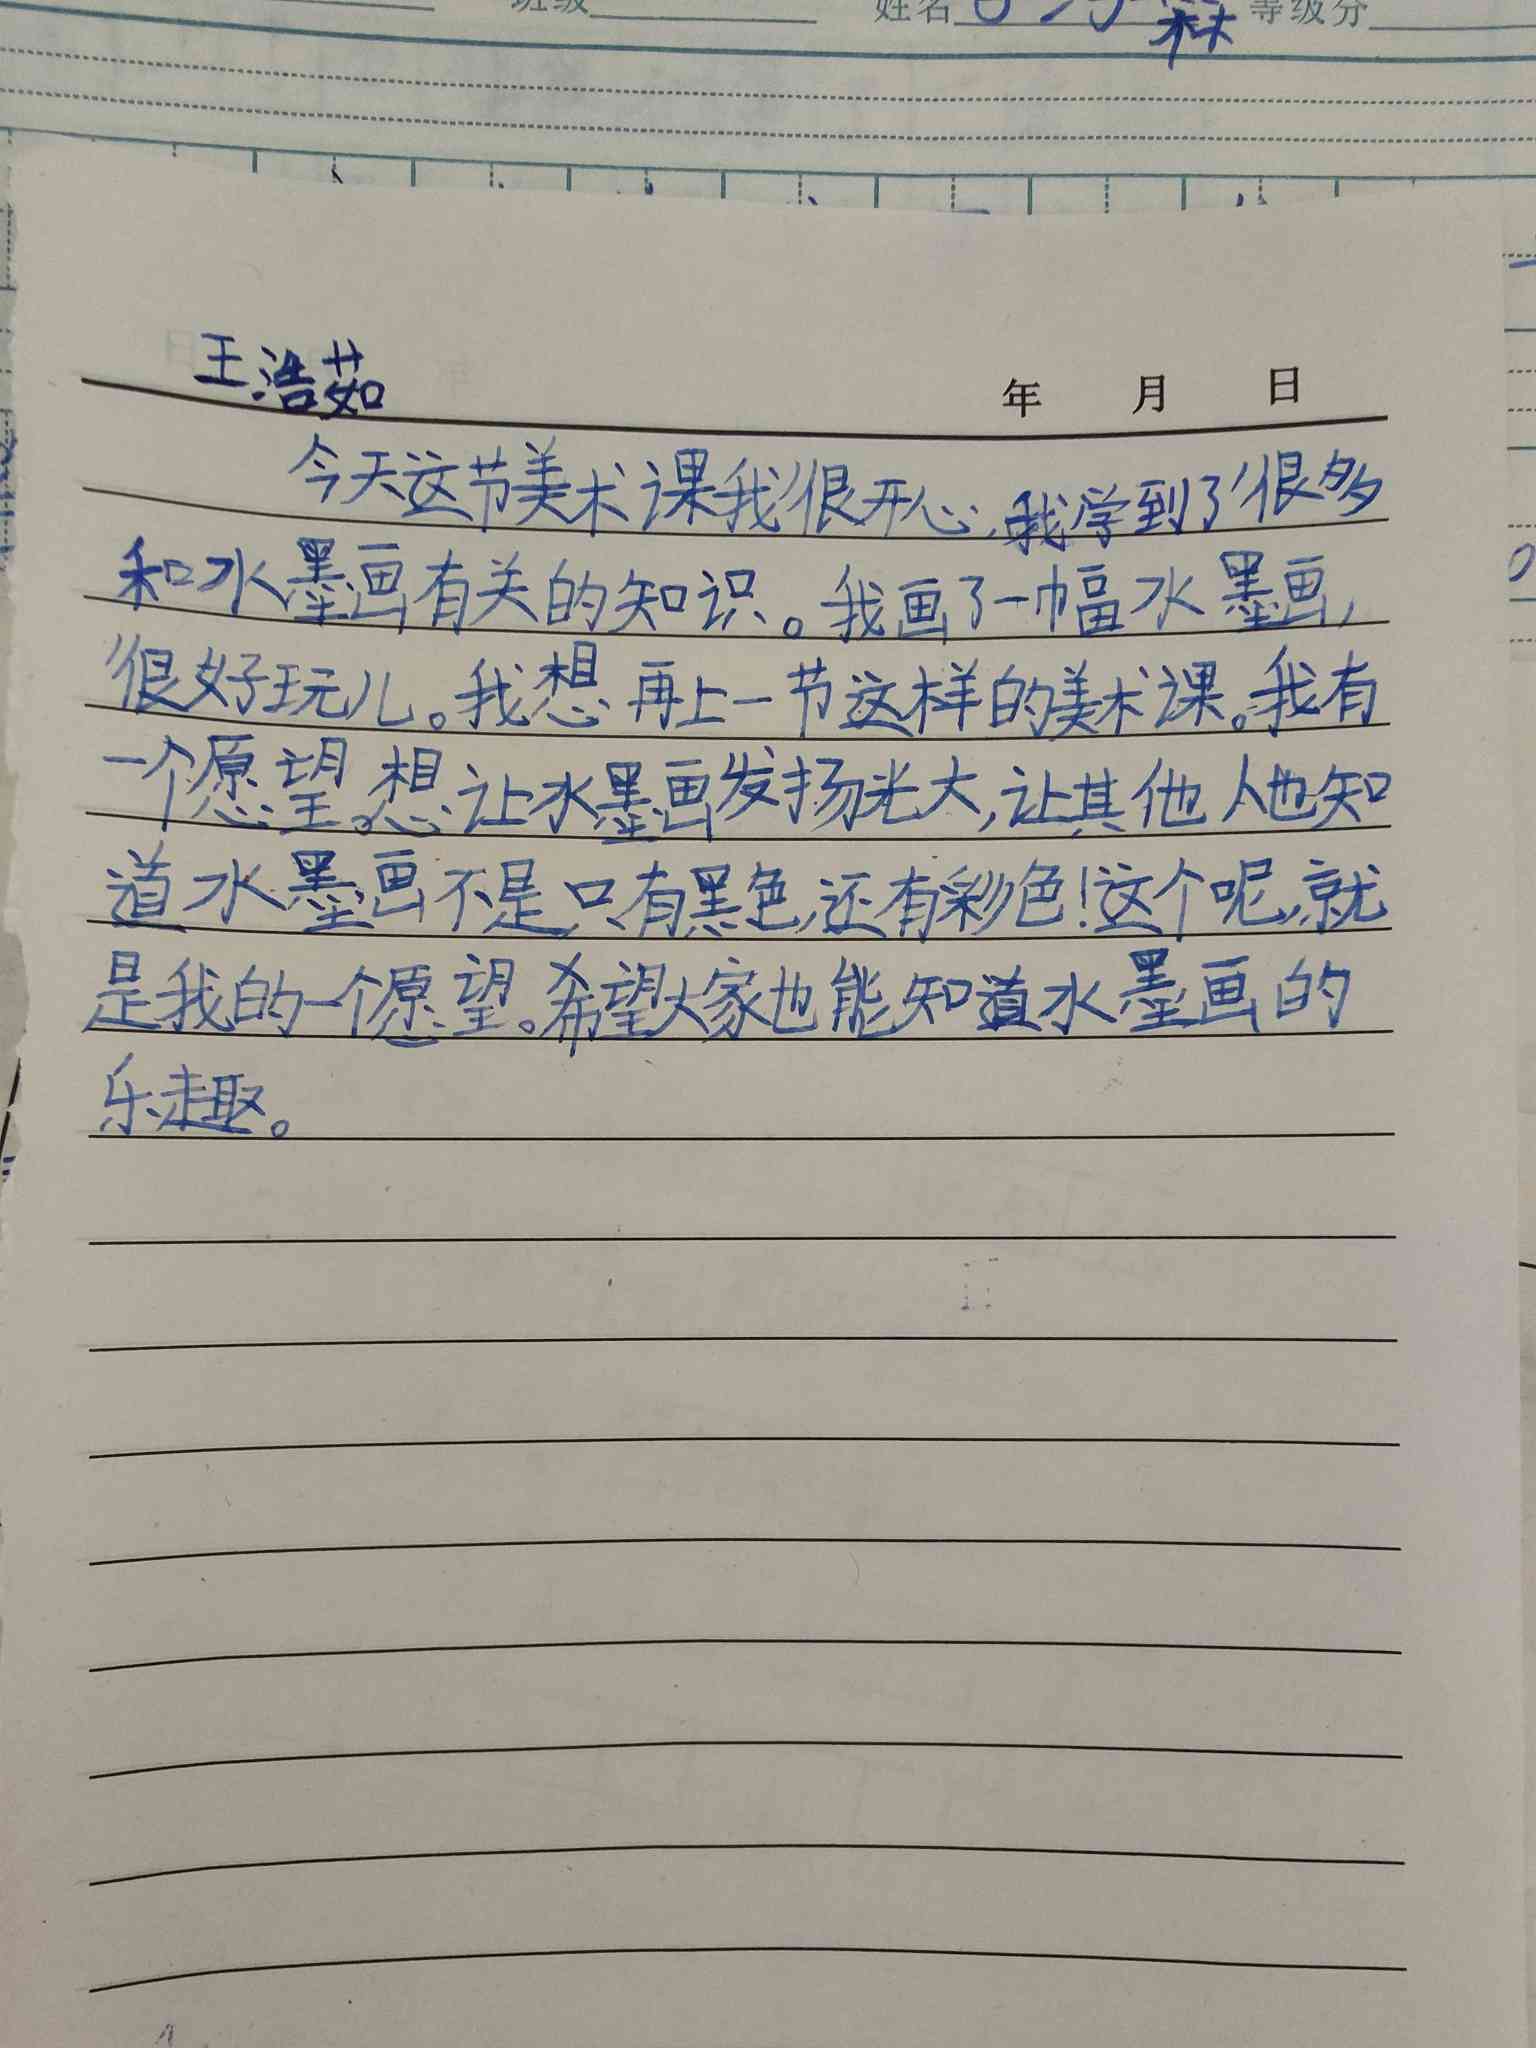 班级 姓名 等级分
王浩茹
年 月 日
今天这节美术课我很开心,我学到了很多
和水墨画有关的知识。我画了一幅水墨画,
很好玩儿。我想再上一节这样的美术课。我有
一个愿望。想让水墨画发扬光大,让其他人也知
道水墨画不是只有黑色,还有彩色!这个呢,就
是我的一个愿望。希望大家也能知道水墨画的
乐趣。